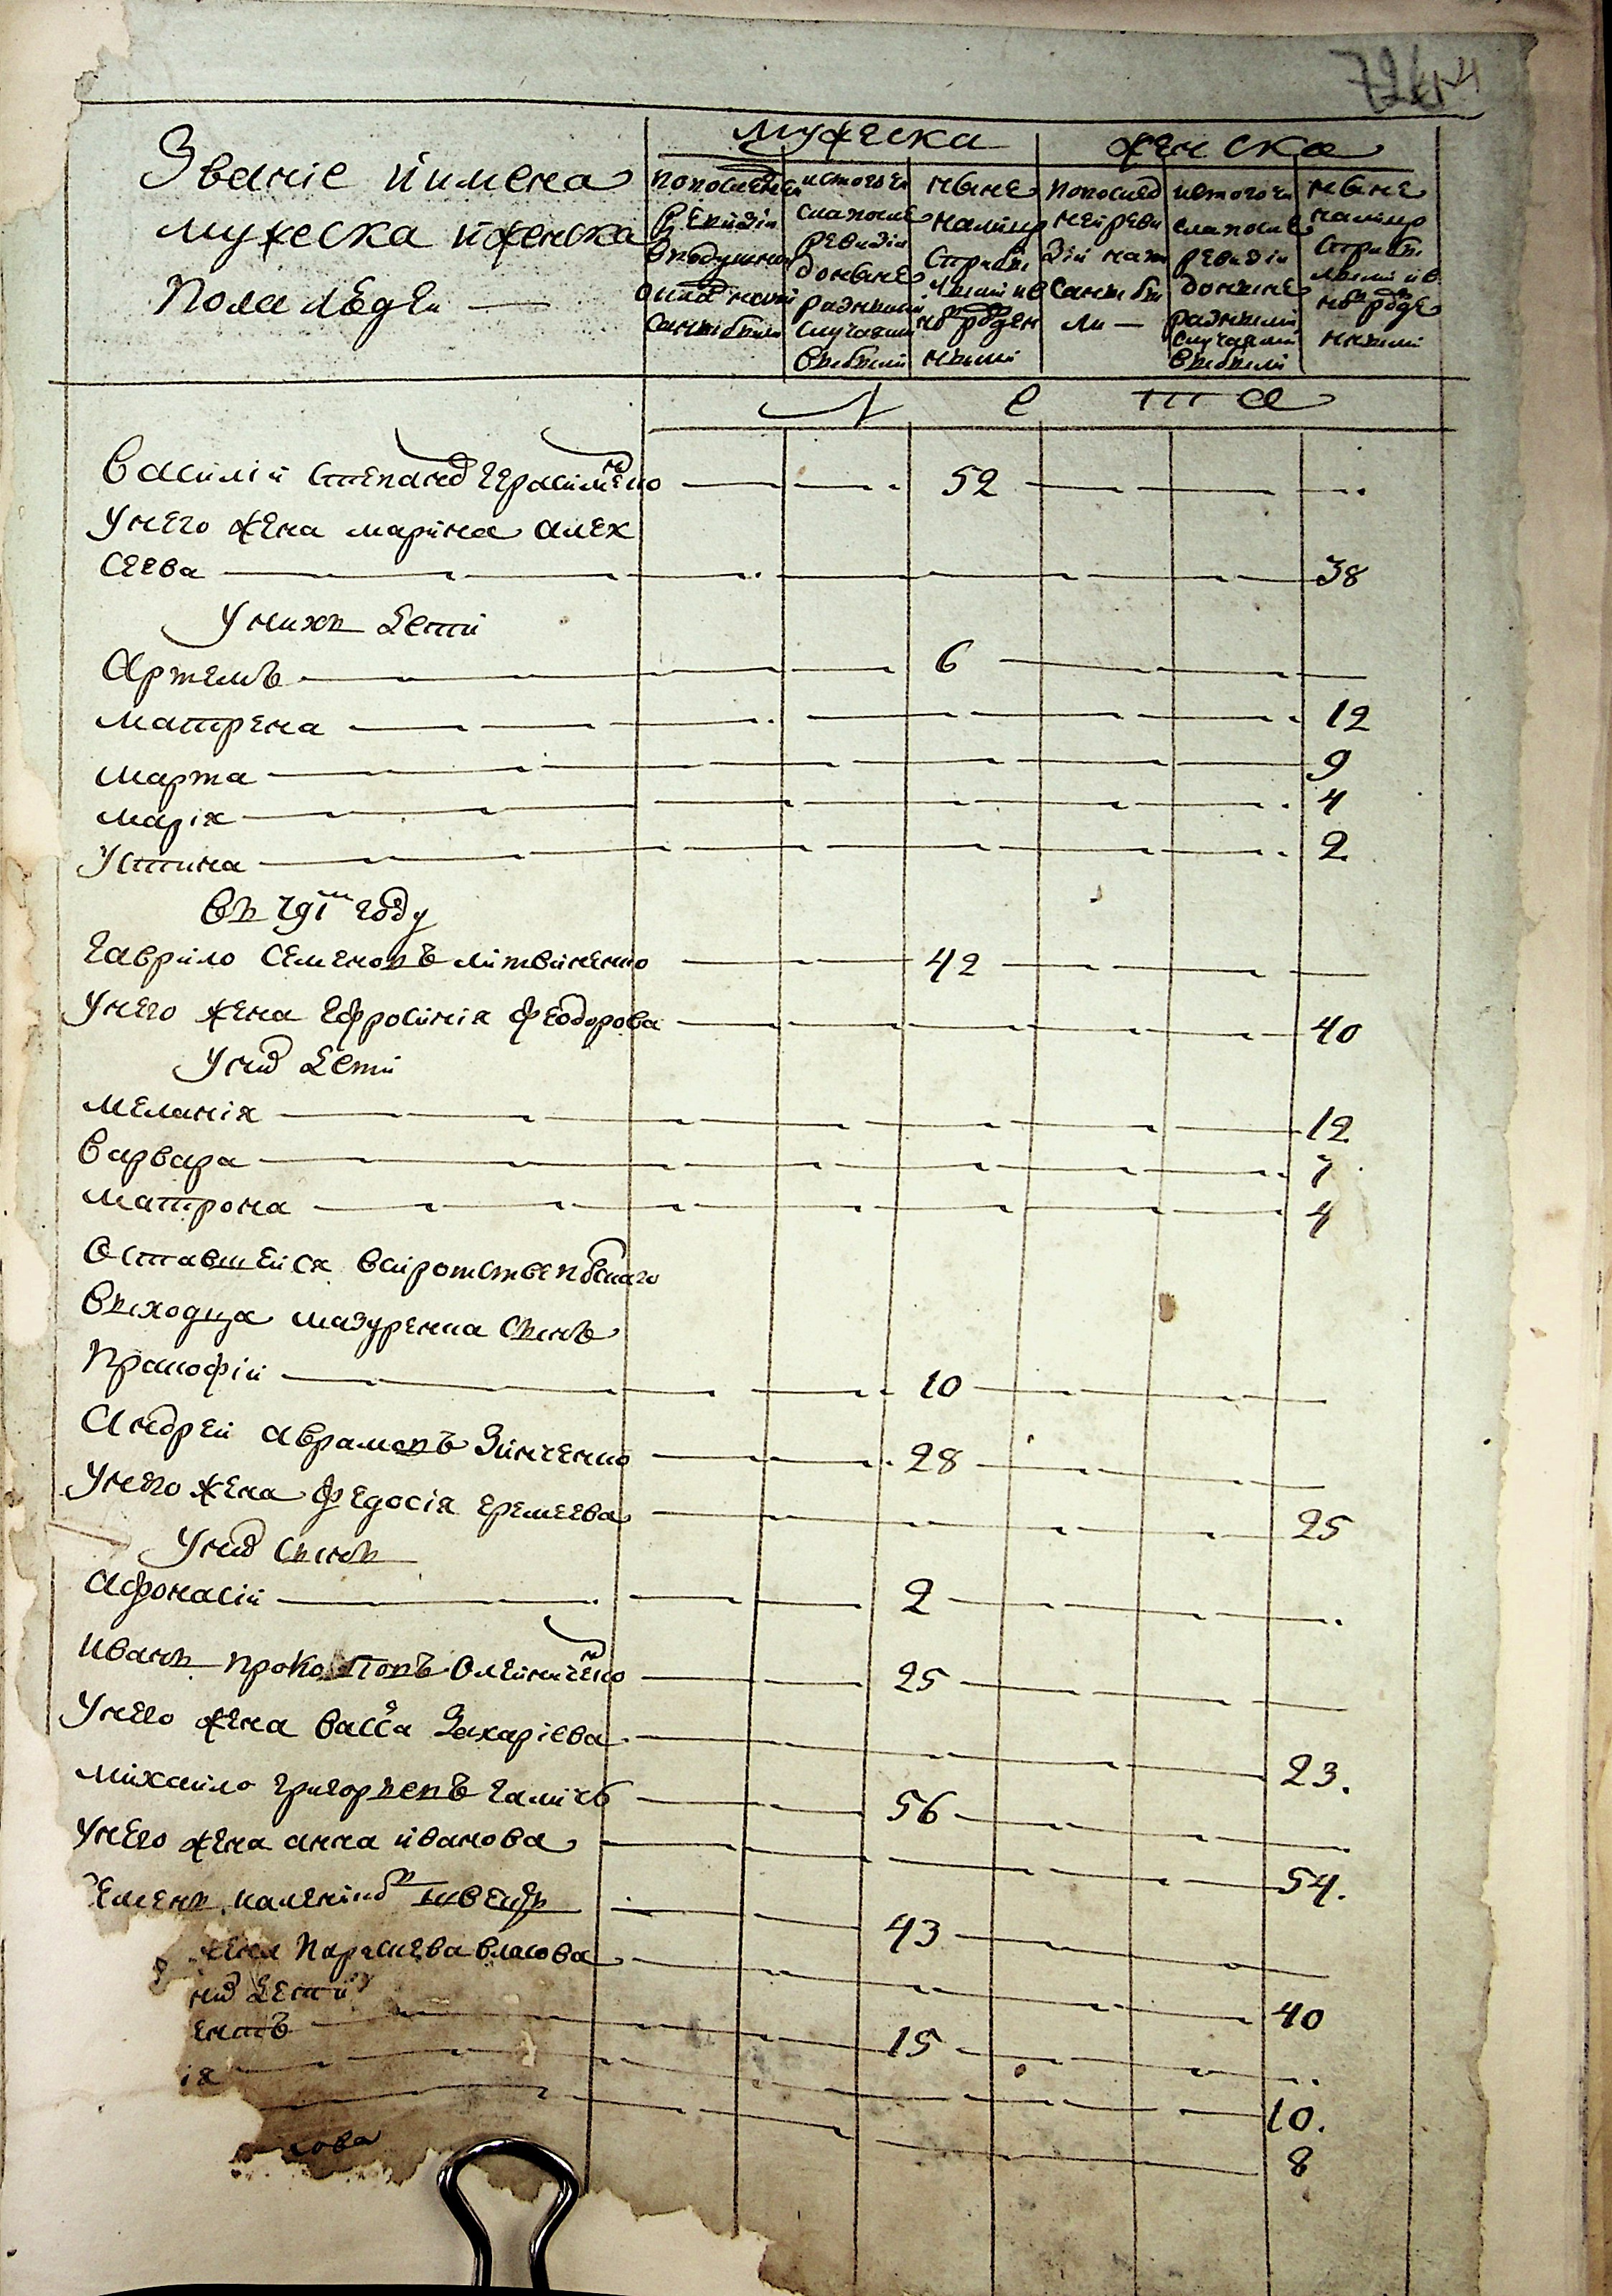 Званіе и имена
мужеска и женска
пола людей
мужеска
женска
по последней ревизіи в подушной оклад написаны были
из того числа после ревизіи до ныне разными случаями выбыли
ныне на лицо с прибылыми и вновь рожденными
по последней ревизіи написаны были
из того числа после ревизіи до ныне разными случаями выбыли
ныне на лицо с прибылыми и вновь рожденными
Лета
Василій Степановъ Герасименко 52
у него жена Марина Алек
сеева 38
у нихъ дети
Артемъ 6
Матрена 12
Марта 9
Марія 4
Устина 2
въ 791м году
Гаврило Семеновъ Литвиненко 42
у него жена Ефросинія Феодорова 40
у них дети
Меланія 12
Варвара 7
Матрона 4
Оставшейся в сиротстве польскаго
выходца Мазуренка сынъ
Прокофій 10
Андрей Аврамовъ Зинченко 28
у него жена Федосія Еремеева 25
у них сынъ
Афонасій 2
Иванъ Прокоповъ Олейниченко 25
у него жена Васса Захаріева 23.
Михайло Григорьевъ Галичь 56
у него жена Анна Иванова 54.
емень Калениковъ Швецъ 43
жена Парасиева Власова 40
них дети
ентъ 15
ія 10.
8
сова